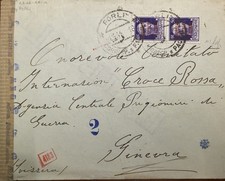 FORLI
Onorevole Comitato
Internazion. "Croce Rossa"
Agenzia Centrale Prigionieri di
Guerra
2
Ginevra
(Svizzera)